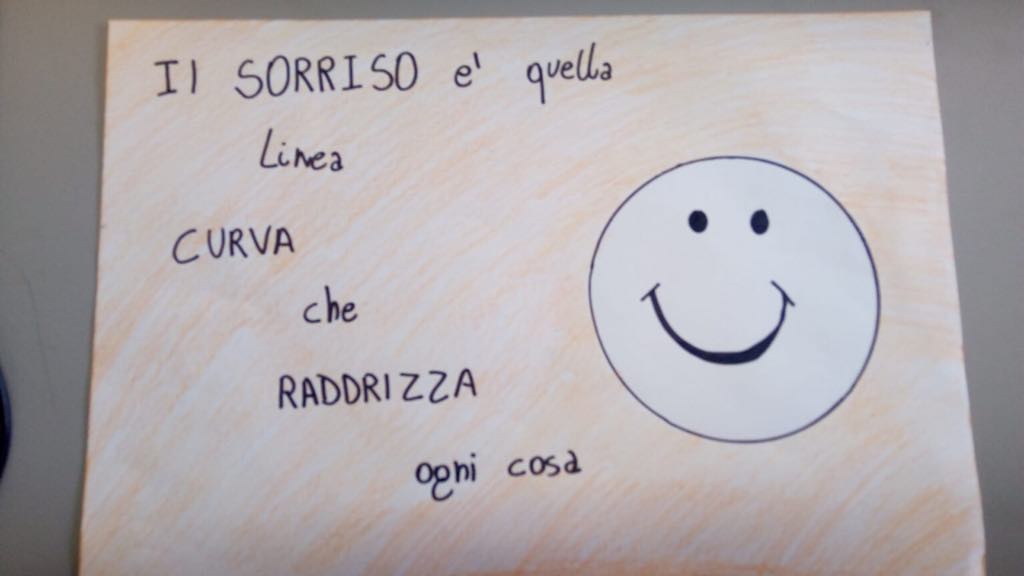 Il SORRISO e' quella
Linea
CURVA
che
RADDRIZZA
ogni cosa